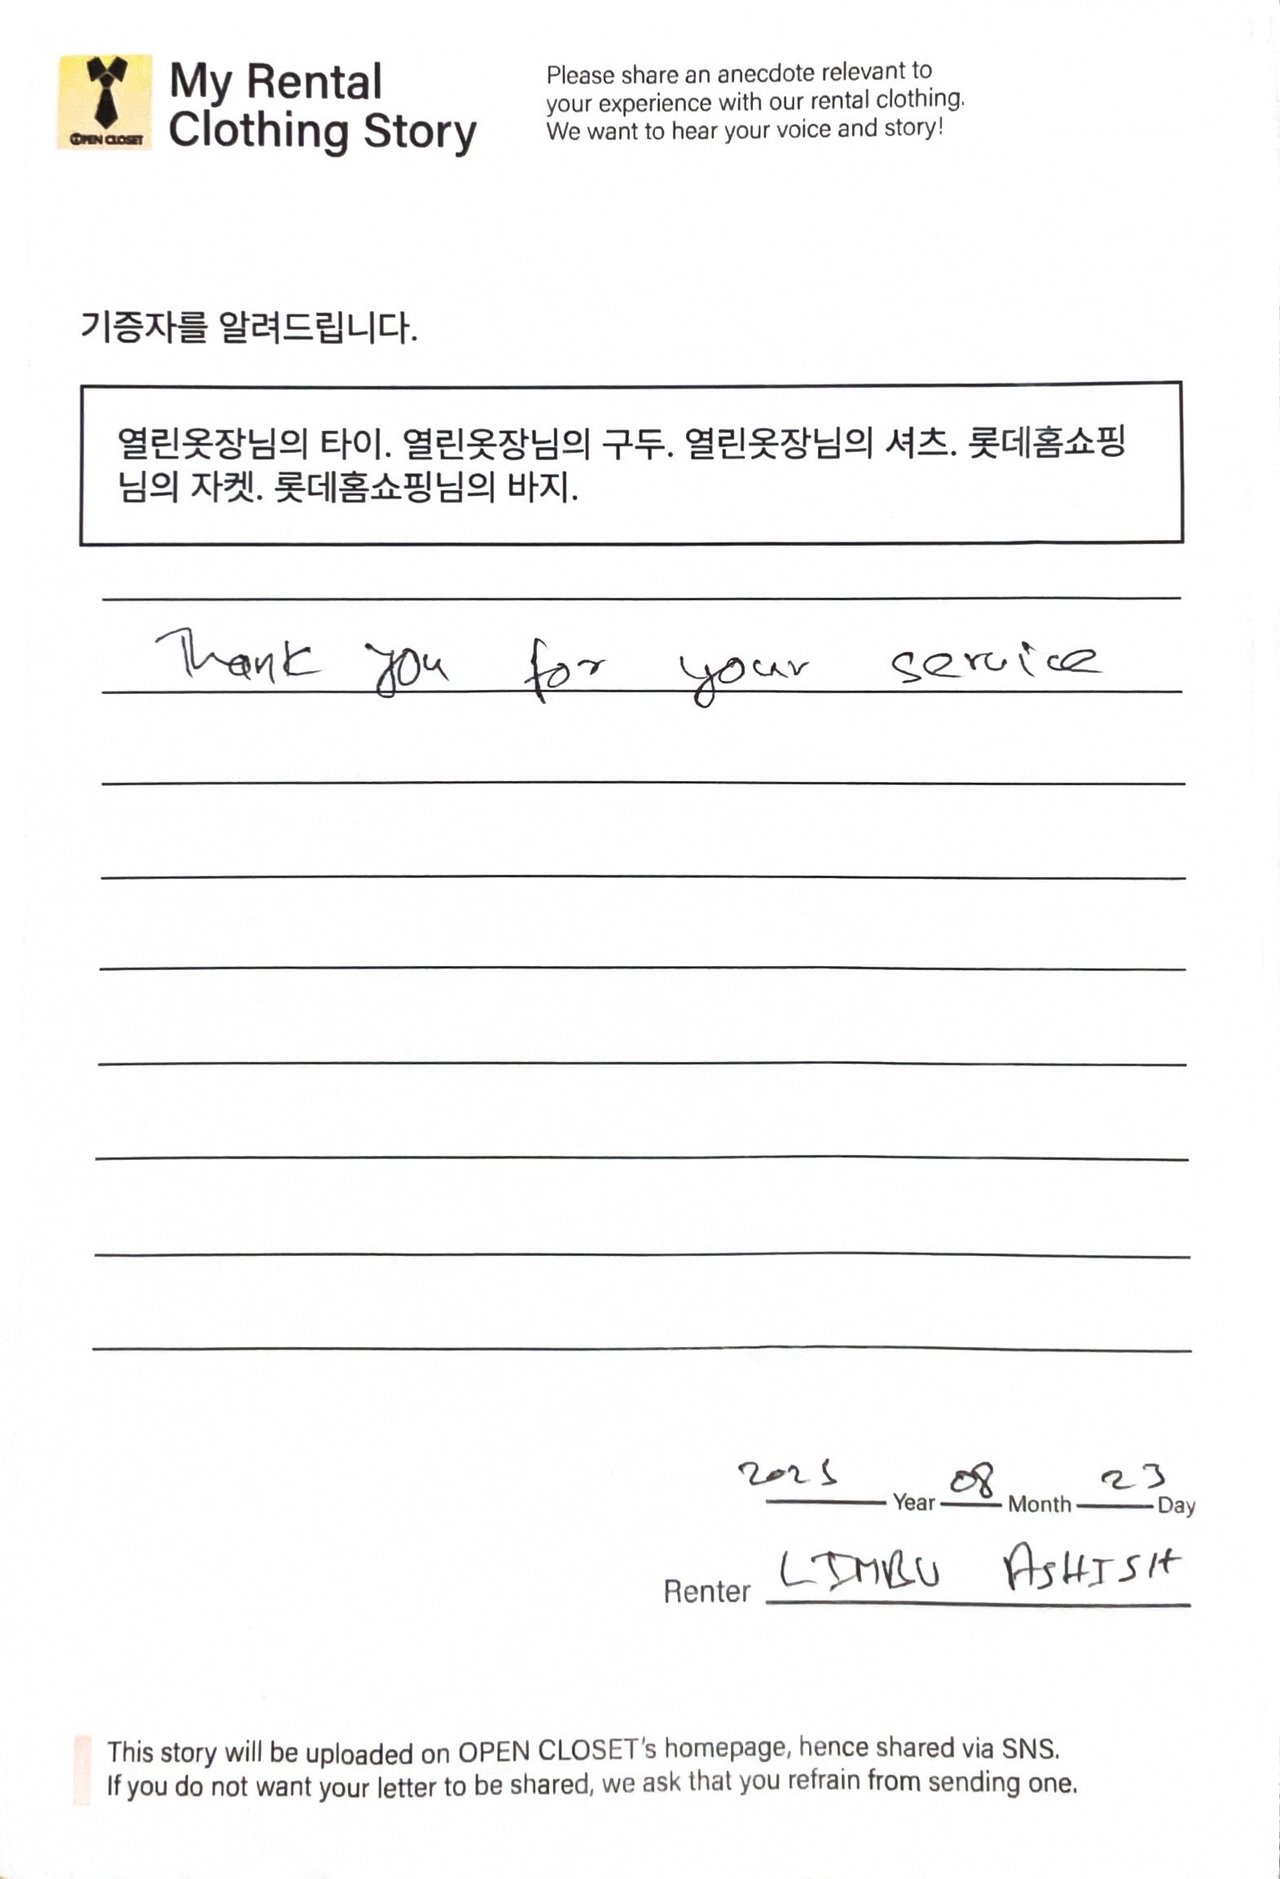 OPEN CLOSET
My Rental
Clothing Story
Please share an anecdote relevant to
your experience with our rental clothing.
We want to hear your voice and story!
기증자를 알려드립니다.
열린옷장님의 타이. 열린옷장님의 구두. 열린옷장님의 셔츠. 롯데홈쇼핑
님의 자켓. 롯데홈쇼핑님의 바지.
Thank you for your service
2025 Year 08 Month 23 Day
Renter LIMBU ASHISH
This story will be uploaded on OPEN CLOSET's homepage, hence shared via SNS.
If you do not want your letter to be shared, we ask that you refrain from sending one.